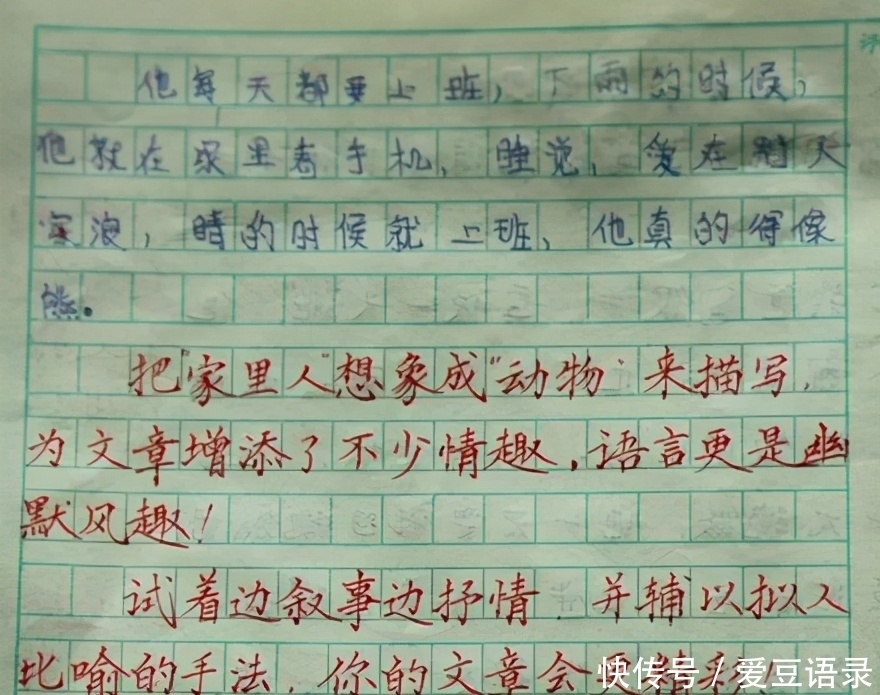 他每天都要上班，下雨的时候，
他就在家里看手机，睡觉，在聊天
浪，晴的时候就上班，他真的得像
熊。
把“家里人”想象成“动物”来描写，
为文章增添了不少情趣，语言更是幽
默风趣！
试着边叙事边抒情，并辅以拟人
比喻的手法，你的文章会
快传号/爱豆语录